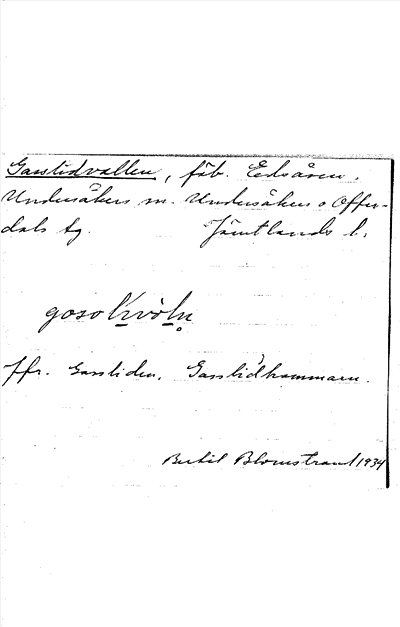 Gasslidvallen, fäb. Edsåsen,
Undersåkers sn. Undersåkers o Offer-
dals tg. Jämtlands l.
Jfr. Gassliden, Gasslidhammarn.
Bertil Blomstrand 1934